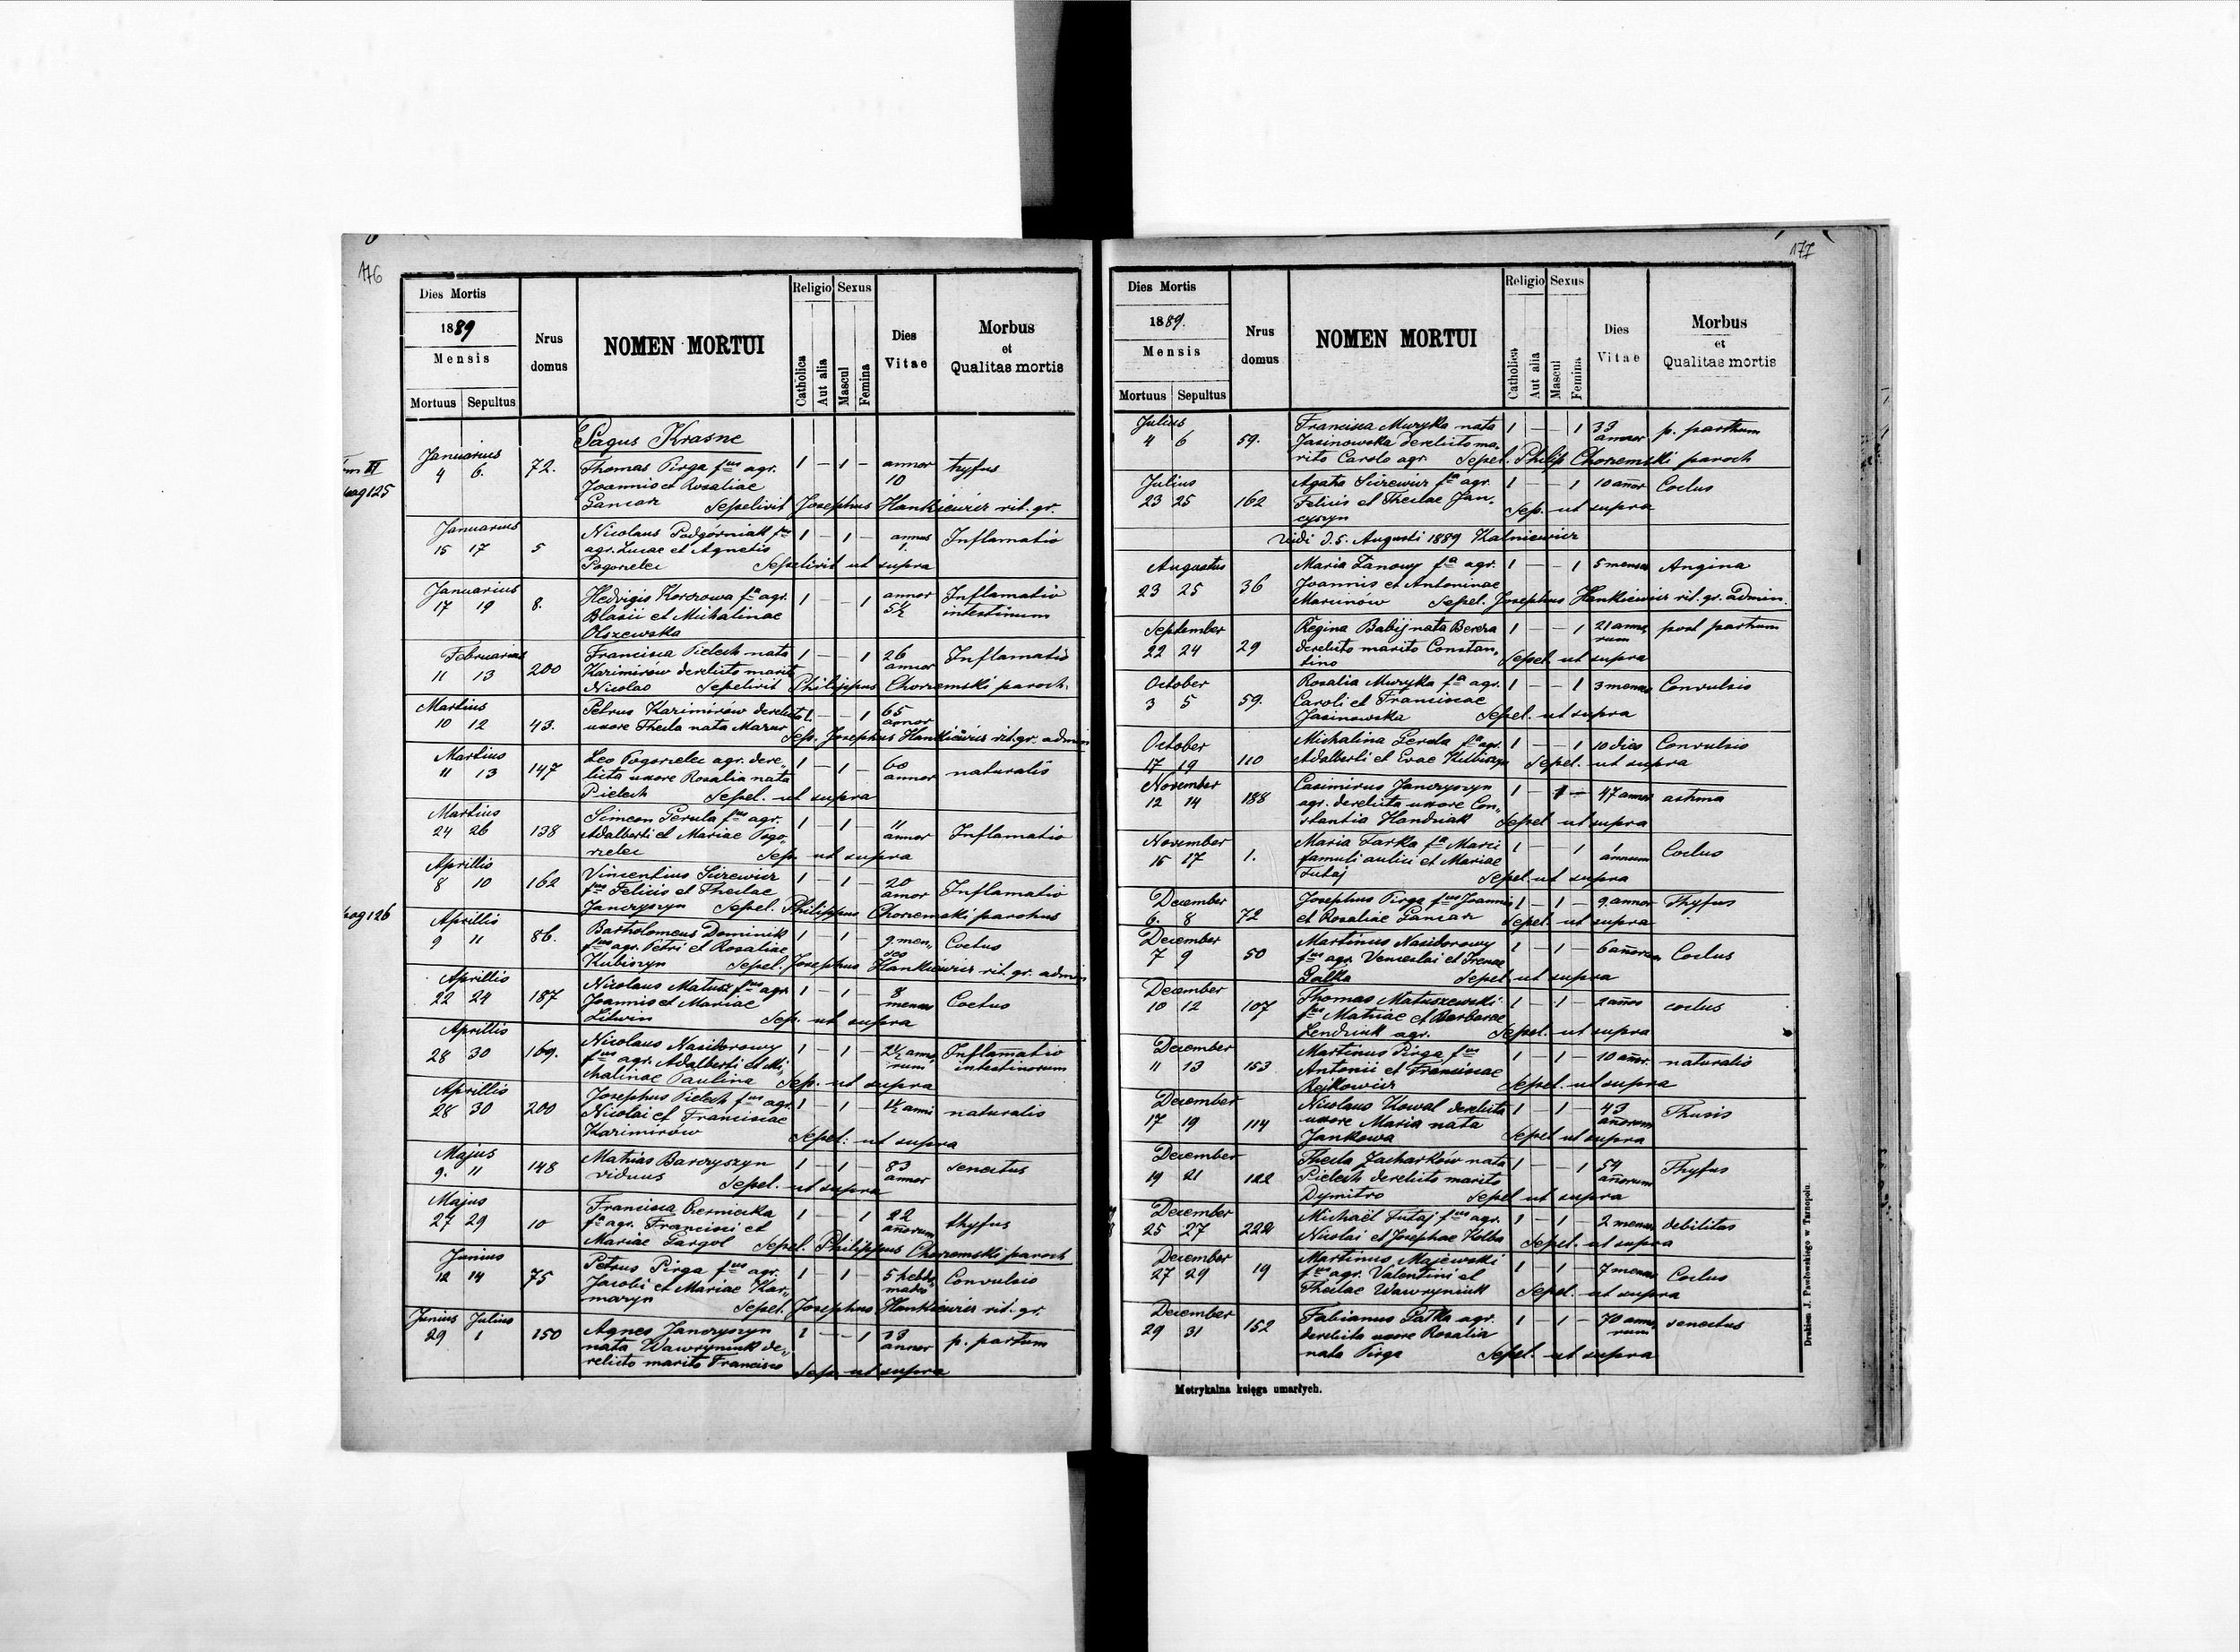 176
Dies Mortis
1889
Mensis
Mortuus Sepultus
Nrus domus
NOMEN MORTUI
Religio Sexus
Catholica Aut alia Mascul Femina
Dies Vitae
Morbus et Qualitas mortis
Pagus Krasne
Januarius
4 6. 72. Thomas Pirga fus agr. 1 – 1 – annor 10 thyfus
Joannis et Rosaliae
Gancar Sepelivit Josephus Hankiewicz rit. gr.
pag 125
Januarius
15 17 5 Nicolaus Podgórniak fus 1 – 1 – annus 1. Inflamatio
agr. Lucae et Agnetis
Pogorzelec Sepelivit ut supra
Januarius
17 19 8. Hedvigis Korczowa fa agr. 1 – – 1 annor 5½ Inflamatio intestinum
Blasii et Michalinae
Olszewska
Februarius
11 13 200 Francisca Pielech nata 1 – – 1 26 annor Inflamatio
Kazimirów derelicto marito
Nicolao Sepelivit Philippus Chorzemski paroch.
Martius
10 12 43. Petrus Kazimirów derelicta 1. – – 1 65 annor
uxore Thecla nata Mazur
Sep. Josephus Hankiewicz rit. gr. admin
Martius
11 13 147 Leo Pogorzelec agr. dere„ 1 – 1 – 60 annor naturalis
licta uxore Rosalia nata
Pielech Sepel. ut supra
Martius
24 26 138 Simeon Gerula fus agr. 1 1 11 annor Inflamatio
Adalberti et Mariae Pogo„
rzelec Sep. ut supra
Aprillis
8 10 162 Vincentius Sizewicz 1 – 1 – 20 annor Inflamatio
fus Felicis et Theclae
Janczyszyn Sepel. Philippus Chorzemski parohus
pag 126
Aprillis
9 11 86. Bartholomeus Dominik 1 – 1 – 9. men„ ses Coctus
fus agr. Petri et Rosaliae
Kubiszyn Sepel. Josephus Hankiewicz rit. gr. admin
Aprillis
22 24 187 Nicolaus Matusz fus agr. 1 – 1 – 8 menses Coctus
Joannis et Mariae
Litwin Sep. ut supra
Aprillis
28 30 169. Nicolaus Nasidorowy 1 – 1 – 2½ anno„ rum Inflamatio intestinorum
fus agr. Adalberti et Mi„
chalinae Paulina Sep. ut supra
Aprillis
28 30 200 Josephus Pielech fus agr. 1 – 1 – 1½ anni naturalis
Nicolai et Franciscae
Kazimirów Sepel: ut supra
Majus
9. 11 148 Mathias Barczyszyn 1 – 1 – 83 annor senectus
viduus Sepel. ut supra
Majus
27 29 10 Francisca Czernicka 1 – – 1 22 añorum thyfus
fa agr. Francisci et
Mariae Gargol Sepel. Philippus Chorzemski paroch
Junius
12 14 75 Petrus Pirga fus agr. 1 – 1 – 5 hebdo„ mades Convulsio
Jacobi et Mariae Kar„
mazyn Sepel. Josephus Hankiewicz rit. gr.
Junius Julius
29 1 150 Agnes Janczyszyn 1 – – 1 annor p. partum
nata Wawryniuk de„
relicto marito Francisco Sep. ut supra
177
Dies Mortis
1889.
Mensis
Mortuus Sepultus
Nrus domus
NOMEN MORTUI
Religio Sexus
Catholica Aut alia Mascul Femina
Dies Vitae
Morbus et Qualitas mortis
Julius
4 6 59. Francisca Muzyka nata 1 – – 1 33 annor p. parthum
Jasinowska derelicto ma„
rito Carolo agr. Sepel. Philip Chorzemski paroch
Julius
23 25 162 Agata Sizewicz fa agr. 1 – – 1 10 añor Coctus
Felicis et Theclae Jan„
cyszyn Sep. ut supra
Vidi d. 5. Augusti 1889 Kalniewicz
Augustus
23 25 36 Maria Zanowy fa agr. 1 – – 1 5 menses Angina
Joannis et Antoninae
Marcinów Sepel. Josephus Hankiewicz rit. gr. admin.
September
22 24 29 Regina Babij nata Bereza 1 – – 1 21 anno„ rum post partum
derelicto marito Constan„
tino Sepel. ut supra
October
3 5 59. Rosalia Muzyka fa agr. 1 – – 1 3 menses Convulsio
Caroli et Franciscae
Jasinowska Sepel. ut supra
October
17 19 110 Michalina Gerula fa agr. 1 – – 1 10 dies Convulsio
Adalberti et Evae Kubiszyn Sepel. ut supra
November
12 14 188 Casimirus Janczyszyn 1 – 1 – 47 annor asthma
agr. derelicta uxore Con„
stantia Handziak Sepel ut supra
November
15 17 1. Maria Farka fa Marci 1 – 1 1 annum Coctus
famuli aulici et Mariae
Futaj Sepel. ut supra
December
6. 8 72 Josephus Pirga fus Joannis 1 – 1 – 9. annor Thyfus
et Rosaliae Gancar Sepel. ut supra
December
7 9 50 Martinus Nasidorowy 1 – 1 – 6 añorum Coctus
fus agr. Venceslai et Irenae
Gałka Sepel ut supra
December
10 12 107 Thomas Matuszewski 1 – 1 – 2 años coctus
fus Mathiae et Barbarae
Lendziuk agr. Sepel. ut supra
December
11 13 153 Martinus Pirga fus 1 – 1 – 10 añor. naturalis
Antonii et Franciscae
Rejkowicz Sepel. ut supra
December
17 19 114 Nicolaus Kowal derelicta 1 – 1 – 43 añorum Thusis
uxore Maria nata
Jankowa Sepel ut supra
December
19 21 122 Thecla Zacharków nata 1 – – 1 54 añorum Thyfus
Pielech derelicto marito
Dymitro Sepel ut supra
December
25 27 222 Michaël Futaj fus agr. 1 – 1 – 2 menses debilitas
Nicolai et Josephae Kolba Sepel. ut supra
December
27 29 19 Martinus Majewski 1 – 1 – 7 menses Coctus
fus agr. Valentini et
Theclae Wawryniuk Sepel. ut supra
December
29 31 152 Fabianus Gałka agr. 1 – 1 – 70 anno„ rum senectus
derelicta uxore Rosalia
nata Pirga Sepel. ut supra
Metrykalna księga umarłych.
Drukiem J. Pawłowskiego w Tarnopolu.